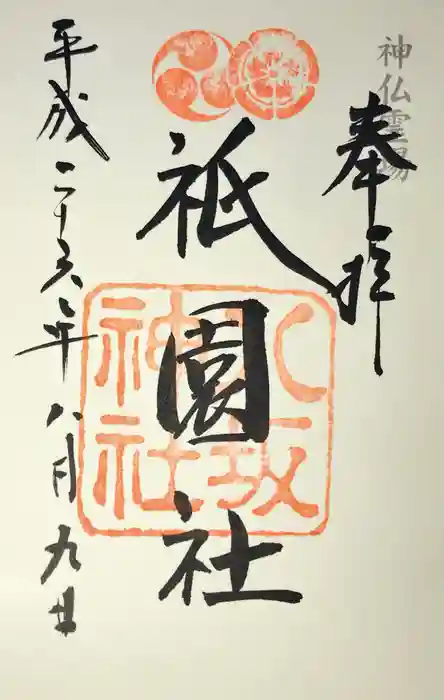 神仏霊場
奉拝
祇園社
八坂
神社
平成二十六年八月九日